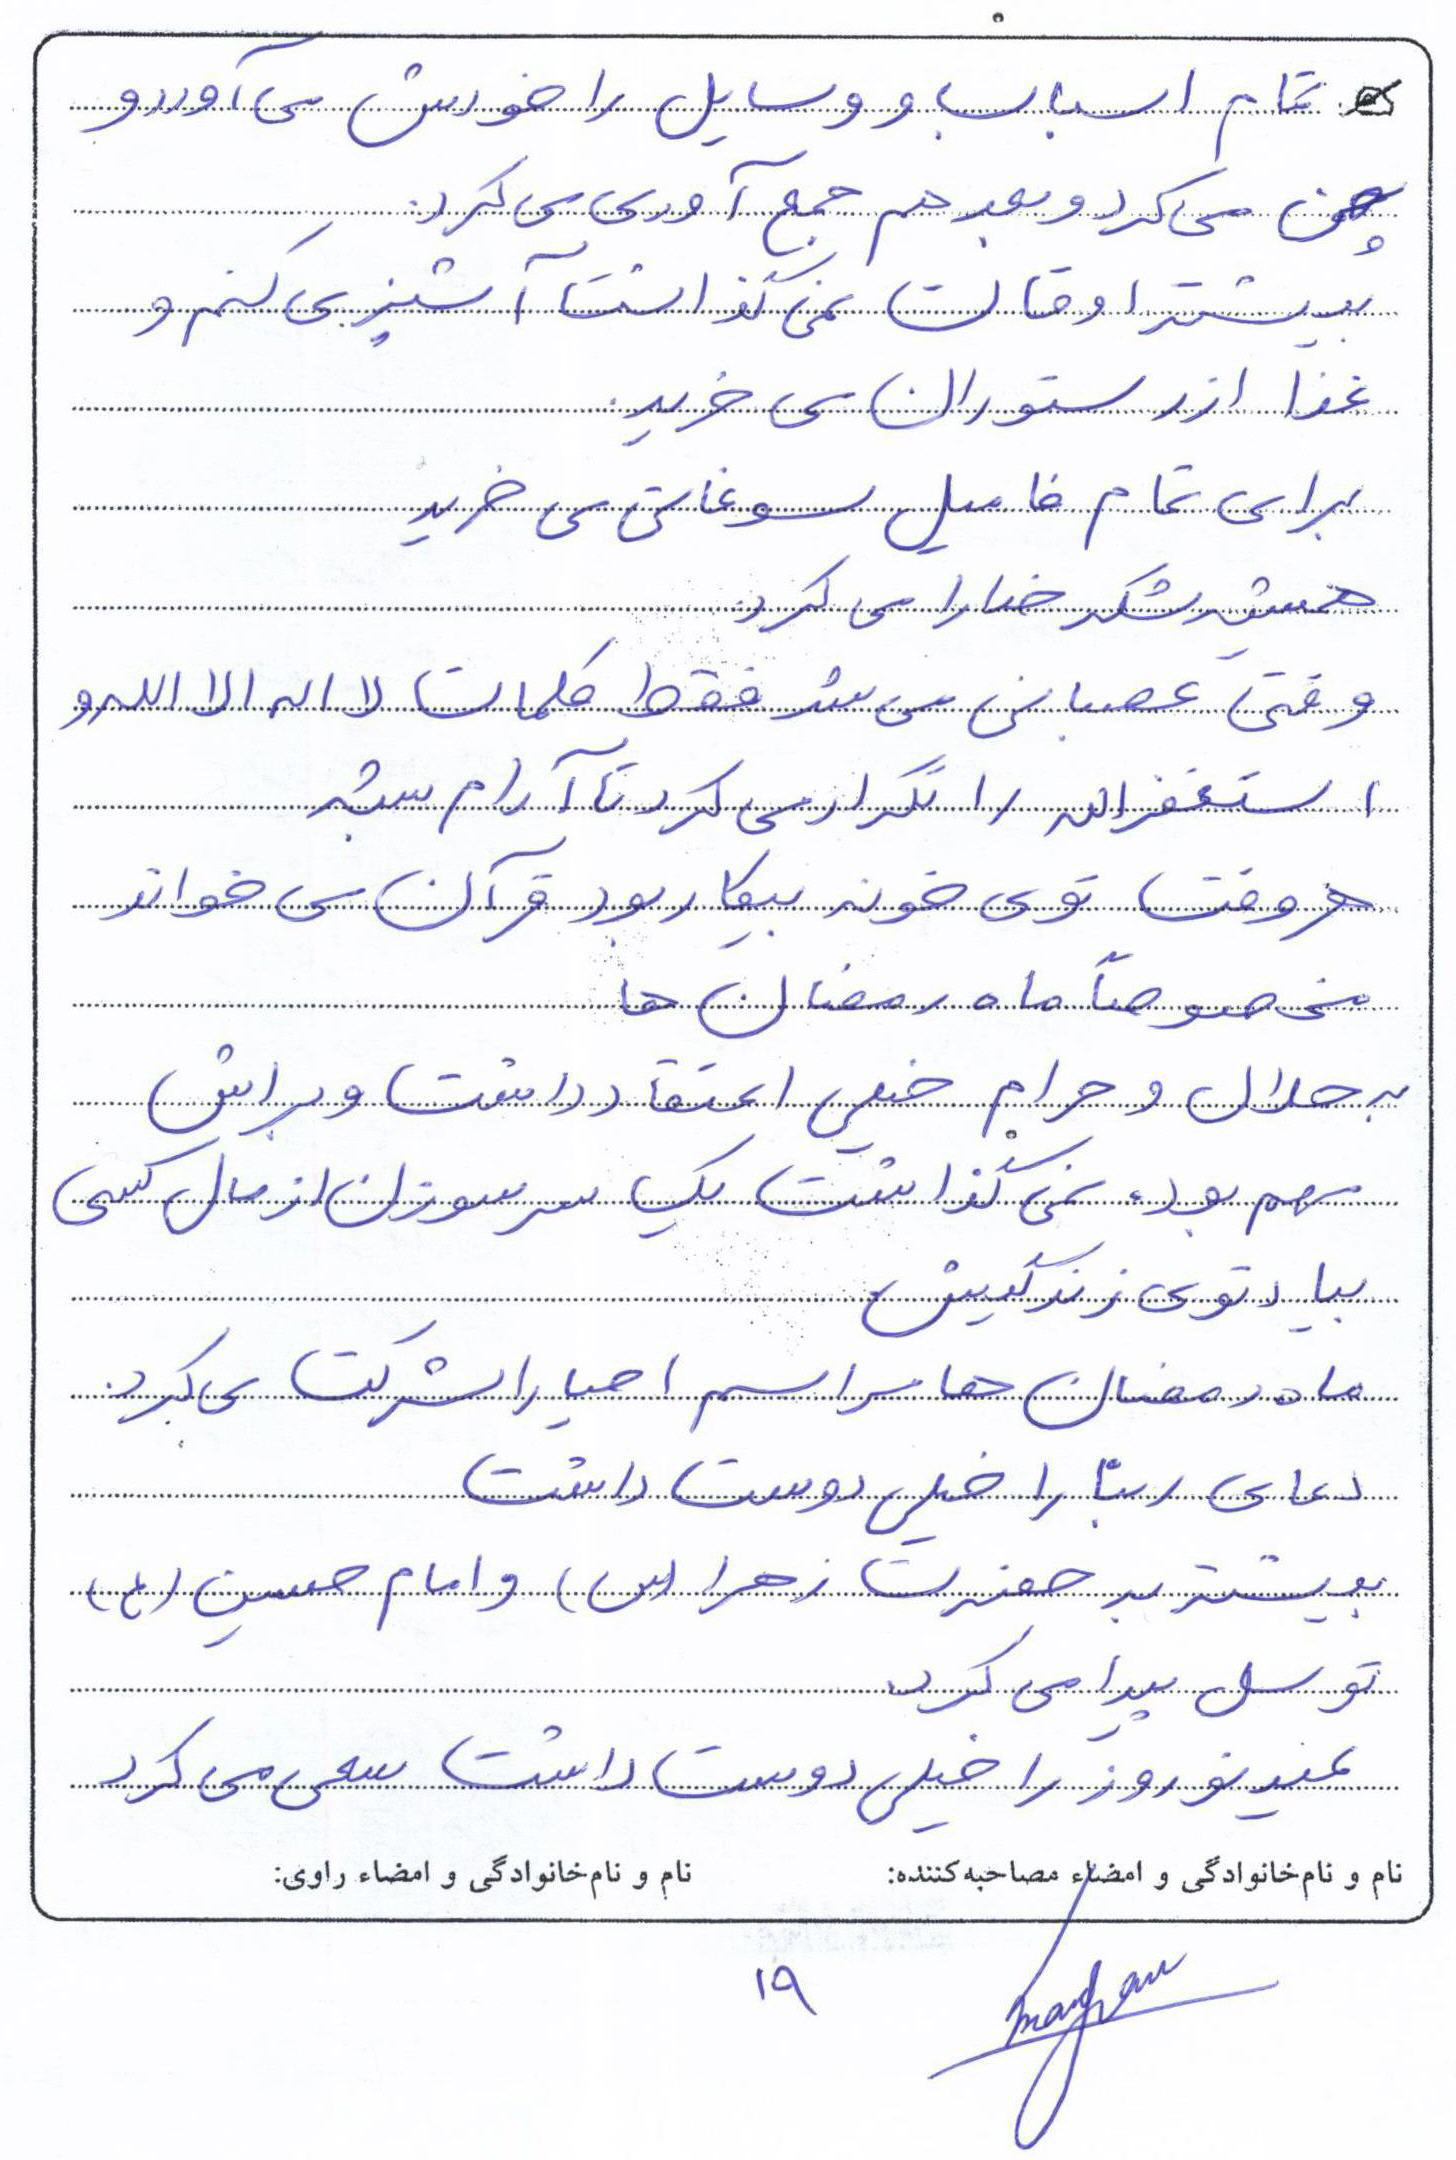 تمام اسباب و وسایل را خودش می آورد و
پهن می کرد و بعد هم جمع آوری می کرد.
بیشتر اوقات نمی گذاشت آشپزی کنم و
غذا از رستوران می خرید.
برای تمام فامیل سوغاتی می خرید
همیشه شکر خدا را می کرد.
وقتی عصبانی می شد فقط کلمات لا اله الا الله و
استغفرالله را تکرار می کرد تا آرام بشه
هر وقت توی خونه بیکار بود قرآن می خواند
مخصوصاً ماه رمضان ها
به حلال و حرام خیلی اعتقاد داشت و براش
مهم بود. نمی گذاشت یک سر سوزن از مال کسی
بیاد توی زندگیش.
ماه رمضان ها مراسم احیا را شرکت می کرد.
دعای ربنّا را خیلی دوست داشت
بیشتر به حضرت زهرا (س) و امام حسین (ع)
توسل پیدا می کرد.
عید نوروز را خیلی دوست داشت سعی می کرد
نام و نام‌خانوادگی و امضاء مصاحبه‌کننده: نام و نام‌خانوادگی و امضاء راوی:
۱۹